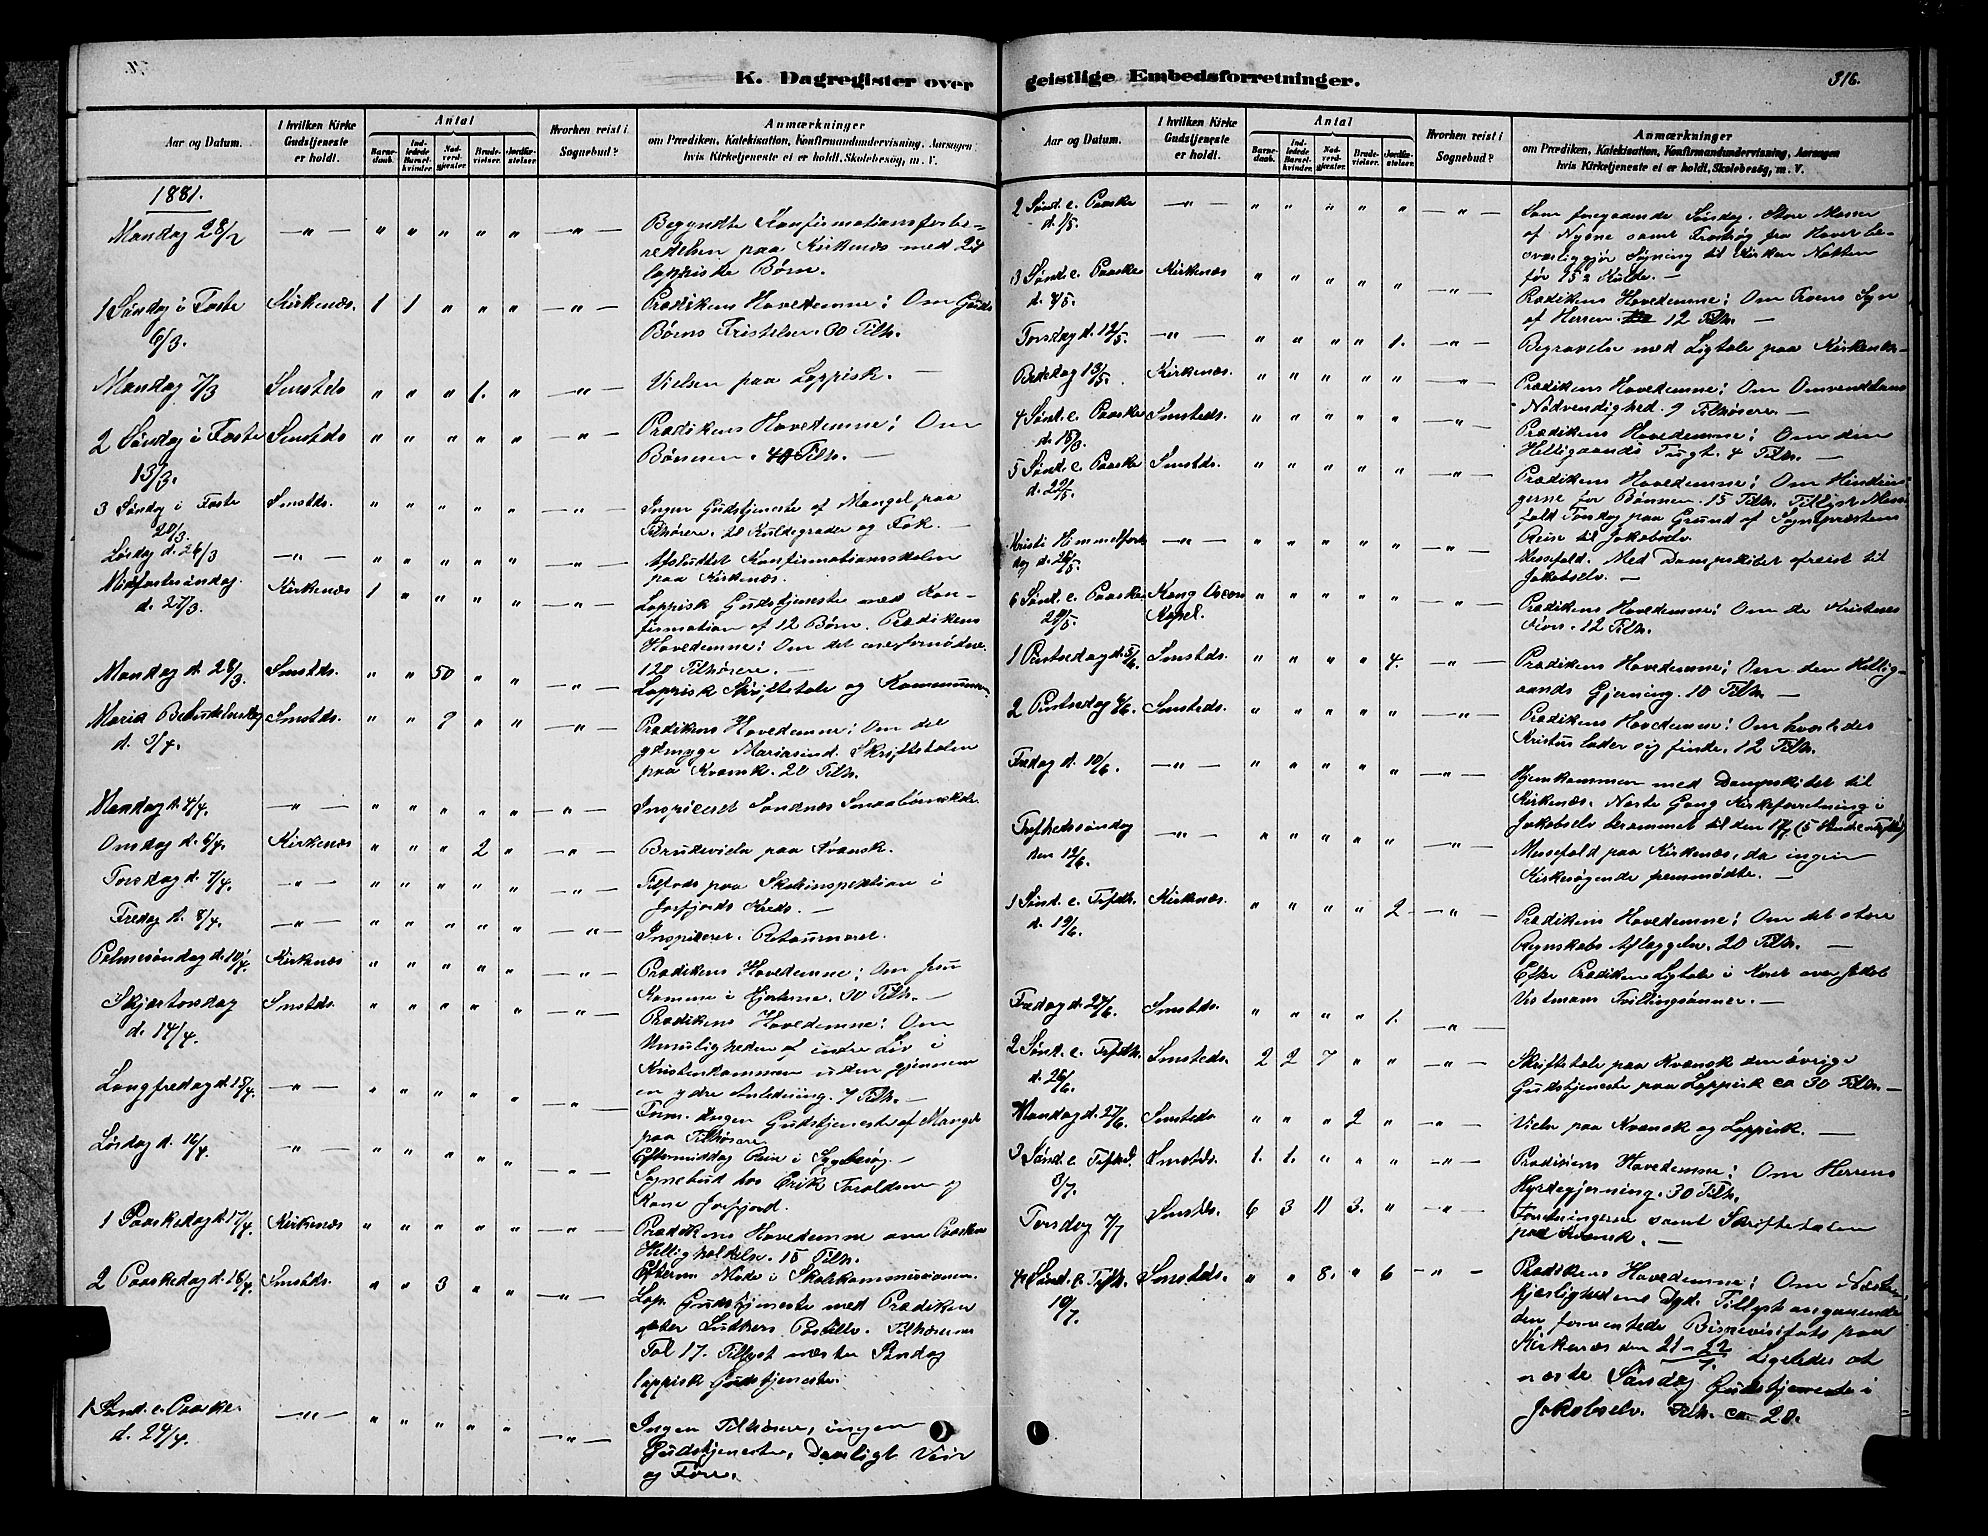 K. Dagregister over
Aar og Datum.
I hvilken Kirke Gudstjeneste er holdt.
Antal
Barnedaab.
Indledede Barselkvinder.
Nadverdgjester.
Brudevielser.
Jordfæstelser.
Hvorhen reist i Sognebud?
Anmærkninger
om Prædiken, Katekisation, Konfirmandundervisning, Aarsagen
hvis Kirketjeneste ei er holdt, Skolebesøg, m. V.
1881.
Mandag 28/2 — " — " " " " " — " — Begyndte Konfirmationsforbe-
redelsen paa Kirkenæs med 24
lappiske Børn.
1 Søndag i Faste Kirkenæs. 1 1 " " " — " — Prædikens Hovedemne: Om Guds
6/3. Børns Fristelser. 60 Tilh.
Mandag 7/3 Smstds " " " 1. " — " — Vielse paa Lappisk. —
2 Søndag i Faste Smstds " " " " " — " — Prædikens Hovedemne: Om
13/3. Bønnen. 40 Tilh. —
3 Søndag i Faste Smstds. " " " " " — " — Ingen Gudstjeneste af Mangel paa
20/3. Tilhørere. 20 Kuldegrader og Fok. —
Lørdag d. 26/3 — " — " " " " " — " — Afsluttet Konfirmationsskolen
paa Kirkenæs.
Midfastesøndag Kirkenæs 1 " " " " — " — Lappisk Gudstjeneste med Kon-
d. 27/3. firmation af 12 Børn. Prædikens
Hovedemne: Om det ene fornødne.
120 Tilhørere. —
Mandag d. 28/3. Smstds. " " 50 " " — " — Lappisk Skriftetale og Kommunion.
Maria Bebudelsesdag Smstds. " " 9 " " — " — Prædikens Hovedemne: Om det
d. 3/4. ydmyge Mariasind. Skriftetalen
paa Kvænsk. 20 Tilh.
Mandag d. 4/4. — " — " " " " " — " — Inspiceret Sandnæs Smaabørnskole.
Onsdag d. 6/4. Kirkenæs " " " 2 " — " — Brudevielse paa Kvænsk.
Torsdag d. 7/4. — " — " " " " " — " — Tilfods paa Skoleinspektion i
Jarfjords Kreds. —
Fredag d. 8/4. — " — " " " " " — " — Inspicerer. Retourneret.
Palmesøndag d. 10/4. Kirkenæs " " " " " — " — Prædikens Hovedemne: Om Jesu
Komme i Hjerterne. 30 Tilh. —
Skjærtorsdag Smstds. " " " " " — " — Prædikens Hovedemne: Om
d. 14/4. Umuligheden af indre Liv i
Kristendommen uden gjennem
en ydre Anledning. 7 Tilh. —
Langfredag d. 15/4. — " — " " " " " — " — Ingen Gudstjeneste af Mangel
paa Tilhørere
Lørdag d. 16/4. " — " " " " " — " — Eftermiddag Reise i Sygebesøg. —
Sognebud hos Erik Taraldsen og
Kone Jarfjord.
1 Paaskedag d. 17/4. Kirkenæs " " " " " — " — Prædikens Hovedemne om Paaskens
Helligholdelse. 15 Tilh.
2 Paaskedag d. 18/4. Smstds. " " 3 " " — " — Efterm Møde i Skolekommissionen.
Lap. Gudstjeneste med Prædiken
efter Luthers Postille. Tilhørernes
Tal 17. Tillyst næste Søndag
lappisk Gudstjeneste.
1 Sønd. e. Paaske — " — " " " " " — " — Ingen Tilhørere, ingen
d. 24/4. Gudstjeneste. Daarligt Veir
og Føre.
geistlige Embedsforretninger.
316.
Aar og Datum.
I hvilken Kirke Gudstjeneste er holdt.
Antal
Barnedaab.
Indledede Barselkvinder.
Nadverdgjester.
Brudevielser.
Jordfæstelser.
Hvorhen reist i Sognebud?
Anmærkninger
om Prædiken, Katekisation, Konfirmandundervisning, Aarsagen
hvis Kirketjeneste ei er holdt, Skolebesøg, m. V.
2 Sønd. e. Paaske — " — " " " " " — " — Som foregaaende Søndag. Store Masser
d. 1/5. af Nysne samt Frostrøg fra Havet be-
vanskliggjør Søgning til Kirken Natten
før 15 2 Kulde. —
3 Sønd. e. Paaske Kirkenæs " " " " " — " — Prædikens Hovedemne: Om Troens Syn
d. 8/5. af Herren. 12 Tilh. —
Torsdag d. 12/5. — " — " " " " 1. — " — Begravelse med Ligtale paa Kirkenæs. —
Bededag 13/5. Kirkenæs. " " " " " — " — Prædikens Hovedemne: Om Omvendelsens
Nødvendighed. 9 Tilhørere. —
4 Sønd. e. Paaske Smsteds. " " " " " — " — Prædikens Hovedemne: Om den
d. 15/5. Helligaands Tugt. 4 Tilh. —
5 Sønd. e. Paaske Smstds. " " " " " — " — Prædikens Hovedemne: Om Hindrin-
d. 22/5. gerne for Bønnen. 15 Tilh. Tillyst Messe-
fald Torsdag paa Grund af Sognepræstens
Reise til Jakobselv.
Kristi Himmelfarts — " — " " " " " — " — Messefald. Med Dampskibet afreist til
dag d. 26/5. Jakobselv. —
6 Sønd. e. Paaske Kong Oscars " " " " " — " — Prædikens Hovedemne: Om de Kristnes
29/5. Kapel. 12 Tilh.
1 Pintsedag d. 5/6. Smstds. " " " " 4. — " — Prædikens Hovedemne: Om den Hellig-
aands Gjerning. 10 Tilh. —
2 Pintsedag 6/6. Smsteds. " " " " " — " — Prædikens Hovedemne: Om hvorledes
Kristus lader sig finde. 12 Tilh.
Fredag d. 10/6. — " — " " " " " — " — Hjemkommen med Dampskibet til
Kirkenæs. Næste Gang Kirkeforretning i
Jakobselv berammet til den 17/7 (5 Sønd. e. Trefh.)
Trefhedssøndag — " — " " " " " — " — Messefald paa Kirkenæs, da ingen
den 12/6. Kirkesøgende fremmødte. —
1 Sønd. e. Trfdh. Kirkenæs. " " " " 2 — " — Prædikens Hovedemne: Om det store
d. 19/6. Regnskabs Aflæggelse. 20 Tilh. —
Efter Prædiken Ligtale i Koret over Jakob
Vestmans Tvillingsønner. —
Fredag d. 24/6. Smstds. " " " " 1. — " —
2 Sønd. e. Trfdh. Smsteds. 2 2 7 " " — " — Skriftetale paa Kvænsk den øvrige
d. 26/6. Gudstjeneste paa Lappisk ca 30 Tilh. —
Mandag d. 27/6. Smsteds " " " 2 " — " — Vielse paa Kvænsk og Lappisk. —
3 Sønd. e. Trfhd. Smstds. 1. 1. " " " — " — Prædikens Hovedemne: Om Herrens
3/7. Hyrdegjerning. 30 Tilh.
Torsdag 7/7 Smstds. 6 3 11 3. " — " — Forretningerne samt Skriftetalen
paa Kvænsk. —
4 Sønd. e. Trfh. Smstds. " " 8. " 6 — " — Prædikens Hovedemne: Om Næste-
10/7. kjærlighedens Dyd. Tillyst angaaende
den forventede Bispevisitats paa
Kirkenæs den 21-22/7. Ligeledes at
næste Søndag Gudstjeneste i
Jakobselv. Tilh. ca. 20.